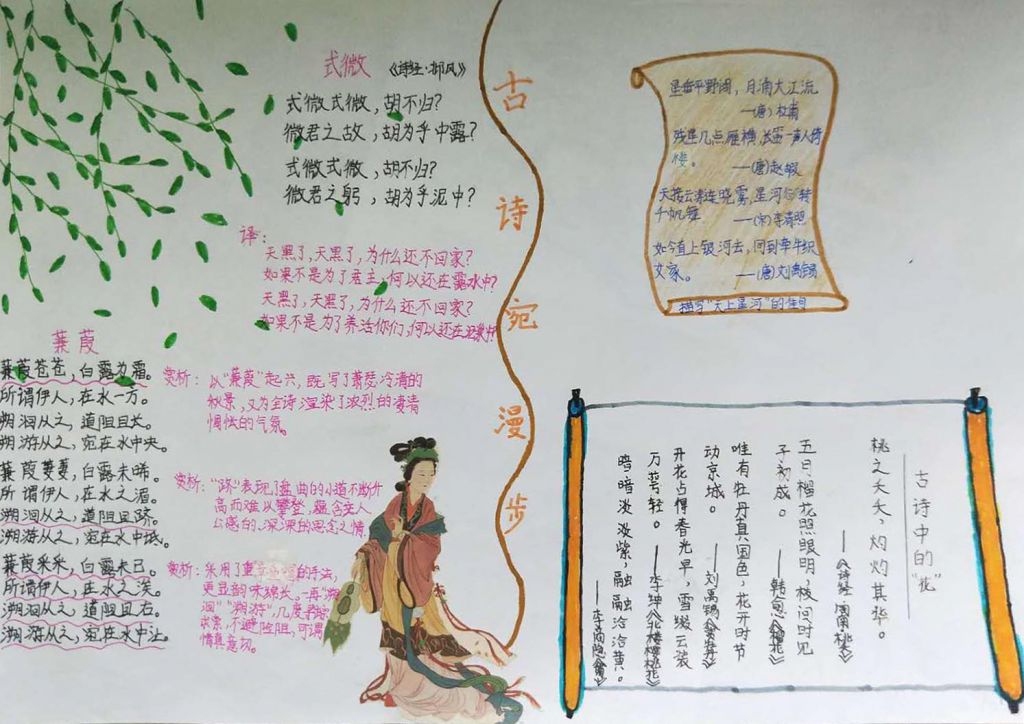 古诗宛漫步
式微 《诗经·邶风》
式微式微，胡不归？
微君之故，胡为乎中露？
式微式微，胡不归？
微君之躬，胡为乎泥中？
译：
天黑了，天黑了，为什么还不回家？
如果不是为了君主，何以还在露水中？
天黑了，天黑了，为什么还不回家？
如果不是为了养活你们，何以还在泥浆中？
蒹葭
蒹葭苍苍，白露为霜。
所谓伊人，在水一方。
溯洄从之，道阻且长。
溯游从之，宛在水中央。
蒹葭萋萋，白露未晞。
所谓伊人，在水之湄。
溯洄从之，道阻且跻。
溯游从之，宛在水中坻。
蒹葭采采，白露未已。
所谓伊人，在水之涘。
溯洄从之，道阻且右。
溯游从之，宛在水中沚。
赏析：以“蒹葭”起兴，既写了萧瑟冷清的
秋景，又为全诗渲染了浓烈的凄清
惆怅的气氛。
赏析：“跻”表现了盘曲的小道不断升
高而难以攀登，蕴含主人
公感的、深深的思念之情
赏析：采用了重章叠句的手法，
更显韵味绵长，一再“溯
洄”“溯游”，几度寻踪
求索，不避险阻，可谓
情真意切。
星垂平野阔，月涌大江流
——(唐)杜甫
残星几点雁横，长笛一声人倚
楼。 ——(唐)赵嘏
天接云涛连晓雾，星河欲转
千帆舞 ——(宋)李清照
如今直上银河去，同到牵牛织
女家。 ——(唐)刘禹锡
描写“天上星河”的佳句
古诗中的“花”
桃之夭夭，灼灼其华。
——《诗经·周南·桃夭》
五月榴花照眼明，枝间时见
子初成。 ——韩愈《榴花》
唯有牡丹真国色，花开时节
动京城。 ——刘禹锡《赏牡丹》
开花占得春光早，雪缀云装
万萼轻。 ——李绅《北楼樱桃花》
暗暗淡淡紫，融融冶冶黄。
——李商隐《菊》